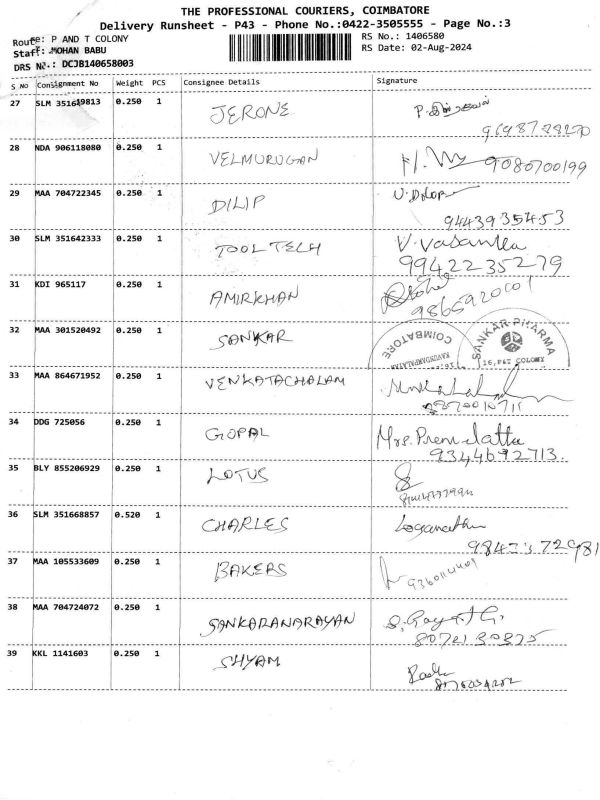 THE PROFESSIONAL COURIERS, COIMBATORE
Delivery Runsheet - P43 - Phone No.:0422-3505555 - Page No.:3
Route: P AND T COLONY
RS No.: 1406580
Staff: MOHAN BABU
RS Date: 02-Aug-2024
DRS No.: DCJB140658003
S No Consignment No Weight PCS Consignee Details Signature
27 SLM 351649813 0.250 1 JERONE
28 NDA 906118080 0.250 1 VELMURUGAN 9080700199
29 MAA 704722345 0.250 1 DILIP V.Dilip
9443935453
30 SLM 351642333 0.250 1 TOOL TECH V.Vasantha
9942235279
31 KDI 965117 0.250 1 AMIRKHAN
9865920001
32 MAA 301520492 0.250 1 SANKAR COIMBATORE SANKAR PHARMA
16,P&T COLONY
33 MAA 864671952 0.250 1 VENKATACHALAM
34 DDG 725056 0.250 1 GOPAL Mrs. Premalatha
9344692713.
35 BLY 855206929 0.250 1 LOTUS
36 SLM 351668857 0.520 1 CHARLES Loganathan
37 MAA 105533609 0.250 1 BAKERS
38 MAA 704724072 0.250 1 SANKARANARAYAN
39 KKL 1141603 0.250 1 SHYAM